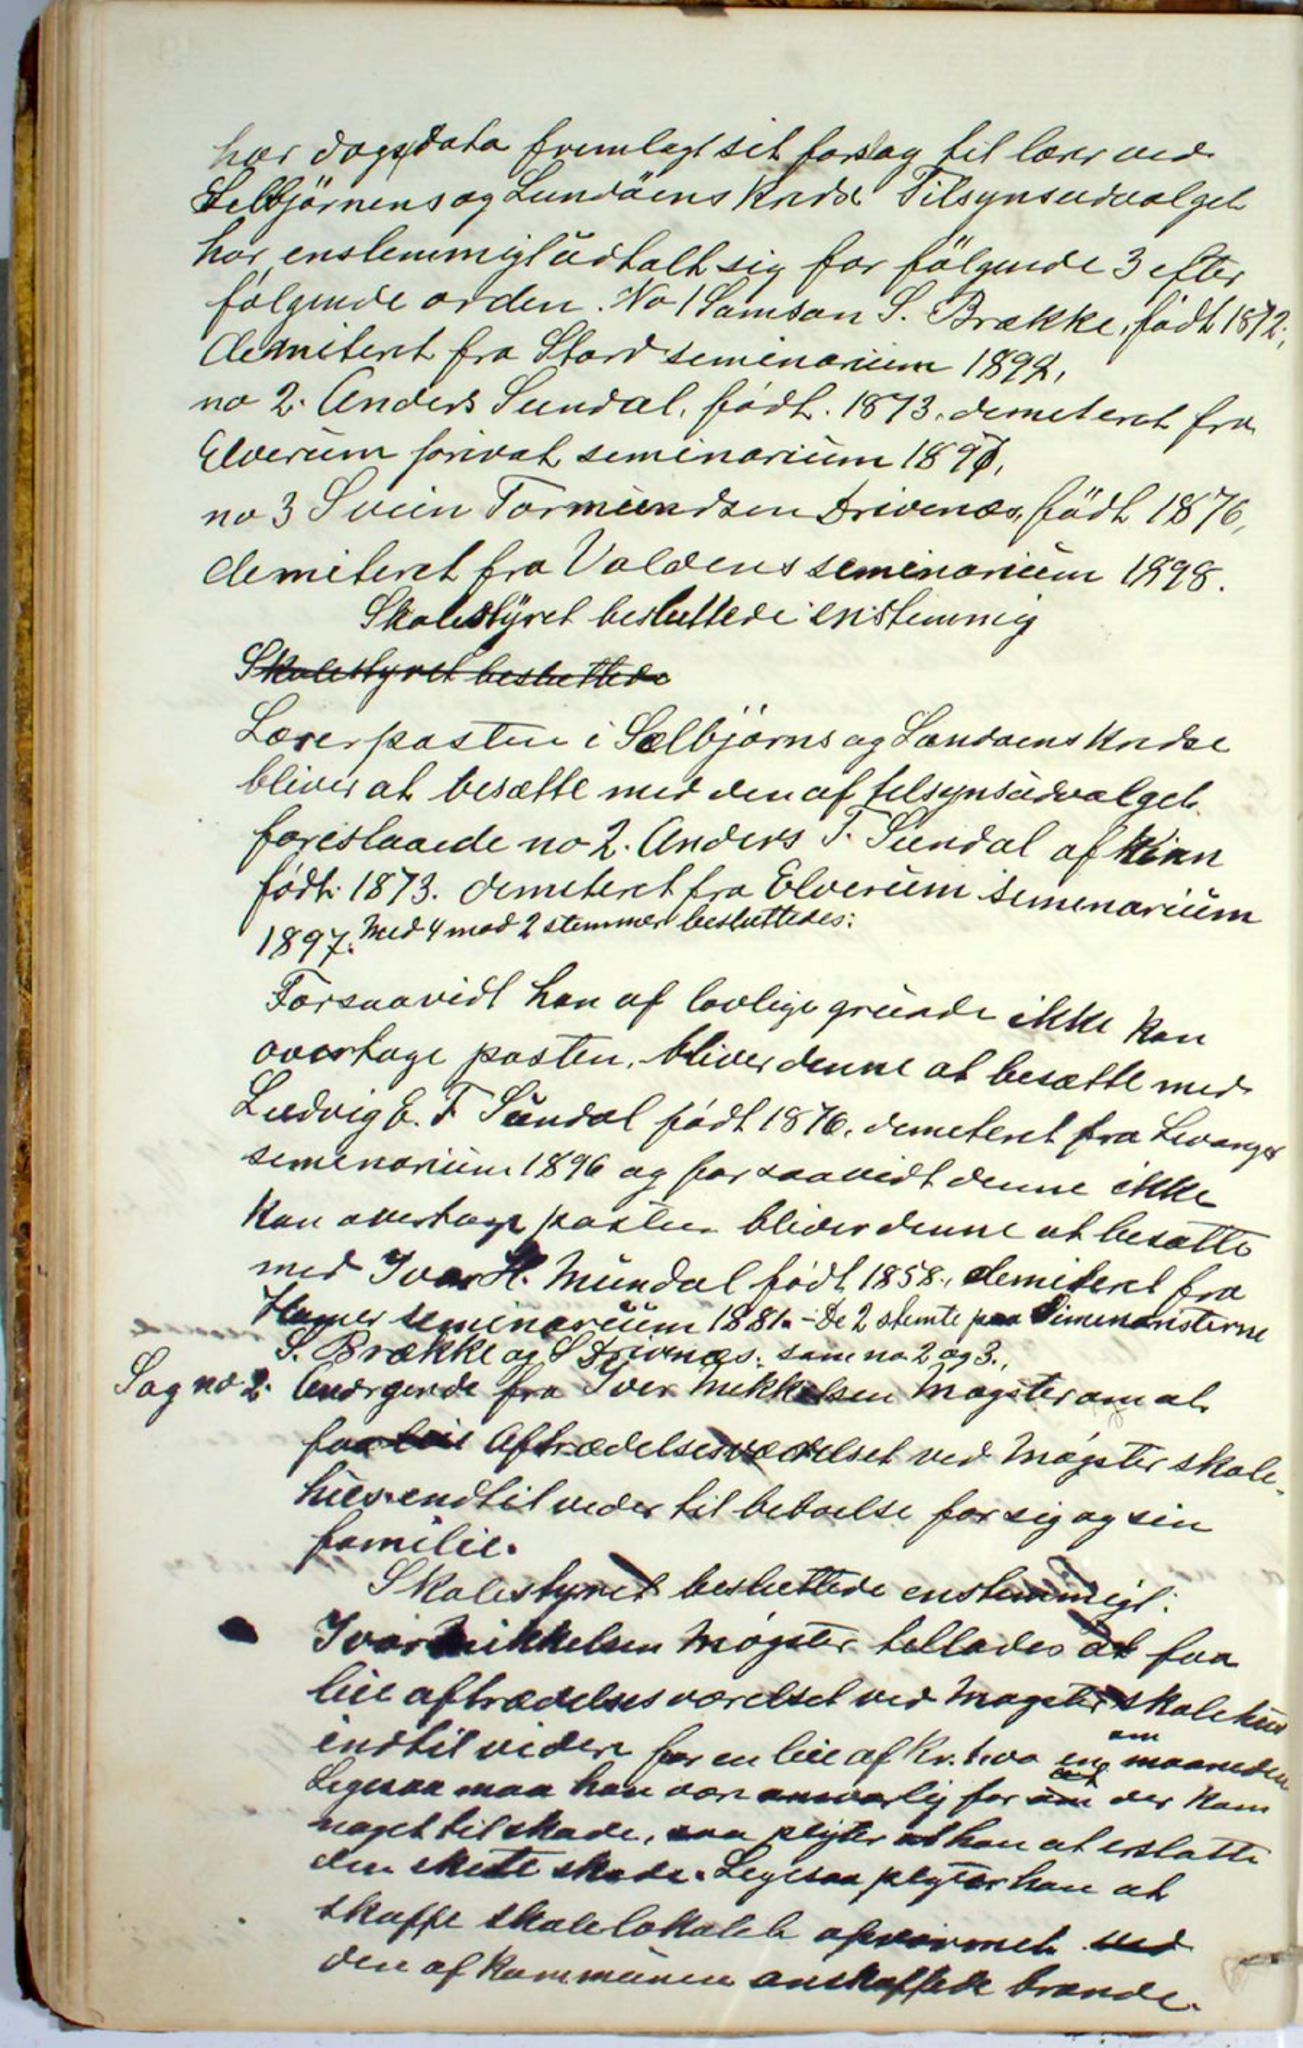 har dags data fremlagt sit forslag til lærer ved
Selbjörnens og Lundöens kreds Tilsynsudvalget
har enstemmigt udtalt sig for fölgende 3 efter
følgende orden. No 1 Samson S. Brække, født 1872,
demiteret fra Stord seminarium 1894,
no 2. Anders Sundal, født. 1873. demeteret fra
Elverum privat seminarium 1897,
no 3 Svein Tormundsen Drivenes, født 1876,
demiteret fra Voldens seminarium 1898.
Skolestyret besluttede enstemmig
Skolestyret besluttede
Lærerposten i Sælbjørns og Landøens kredse
bliver at besætte med den af telsynsudvalget
foreslaaede no 2. Anders T. Sundal af Kinn
født 1873. demeteret fra Elverum semenarium
1897. Med 4 mod 2 stemmer besluttedes:
Forsaavidt han af lovlige grunde ikke kan
overtage posten, bliver denne at besætte med
Ludvig E. F Sundal født 1876, demeteret fra Levanger
semenarium 1896 og forsaavidt denne ikke
kan overtage posten bliver denne at besætte
med Ivar H. Mundal født 1858, demiteret fra
Hamar seminarium 1881. - De 2 stemte paa Simenaristerne
S. Brække og S Drivnæs. som no 2 og 3.,
Sag no 2. Andrgende fra Iver Mikkelsen Møgster om at
faa leie Aftrædelsesværelset ved Møgster skole-
hus endtil veder til beboelse for sig og sin
familie.
Skolestyret besluttede enstemmigt.
Ivar Mikkelsen Møgster tellades at faa
leie aftrædelsesværelset ved Møgster skolehus
indtil videre for en leie af kr. 1.00 om maaneden
Legesaa maa han vær ansvarlig for at der kom
noget til skade, saa plegter at han at erstatte
den skete skade. Legesaa plegter han at
skaffe skolelokalet opvarmet ved
den af kommunen anskaffede brænde.